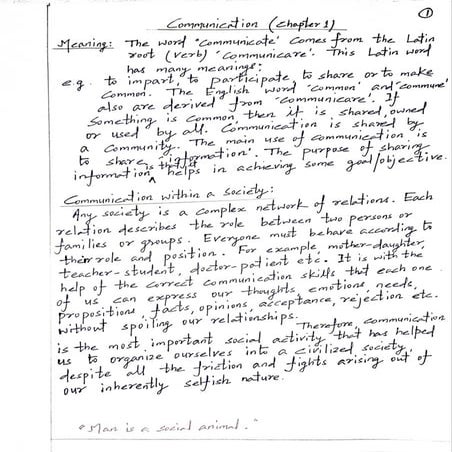 Communication (Chapter 1)
①
Meaning: The word "Communicate" comes from the Latin
root (verb) 'Communicare'. This Latin word
has many meanings:
e.g. to impart, to participate, to share or to make
common. The English word 'common' and 'commune'
also are derived from 'communicare'. If
something is common, then it is shared, owned
or used by all. Communication is shared by
a community. The main use of communication is
to share 'information'. The purpose of sharing
is that it
information ^ helps in achieving some goal/objective.
Communication within a Society:
Any society is a complex network of relations. Each
relation describes the role between two persons or
families or groups. Everyone must behave according to
their role and position. For example mother-daughter,
teacher-student, doctor-patient etc. It is with the
help of the correct communication skills that each one
of us can express our thoughts, emotions, needs,
propositions, facts, opinions, acceptance, rejection etc.
without spoiling our relationships.
Therefore, communication
is the most important social activity that has helped
us to organize ourselves into a civilized society,
despite all the friction and fights arising out of
our inherently selfish nature.
"Man is a social animal."